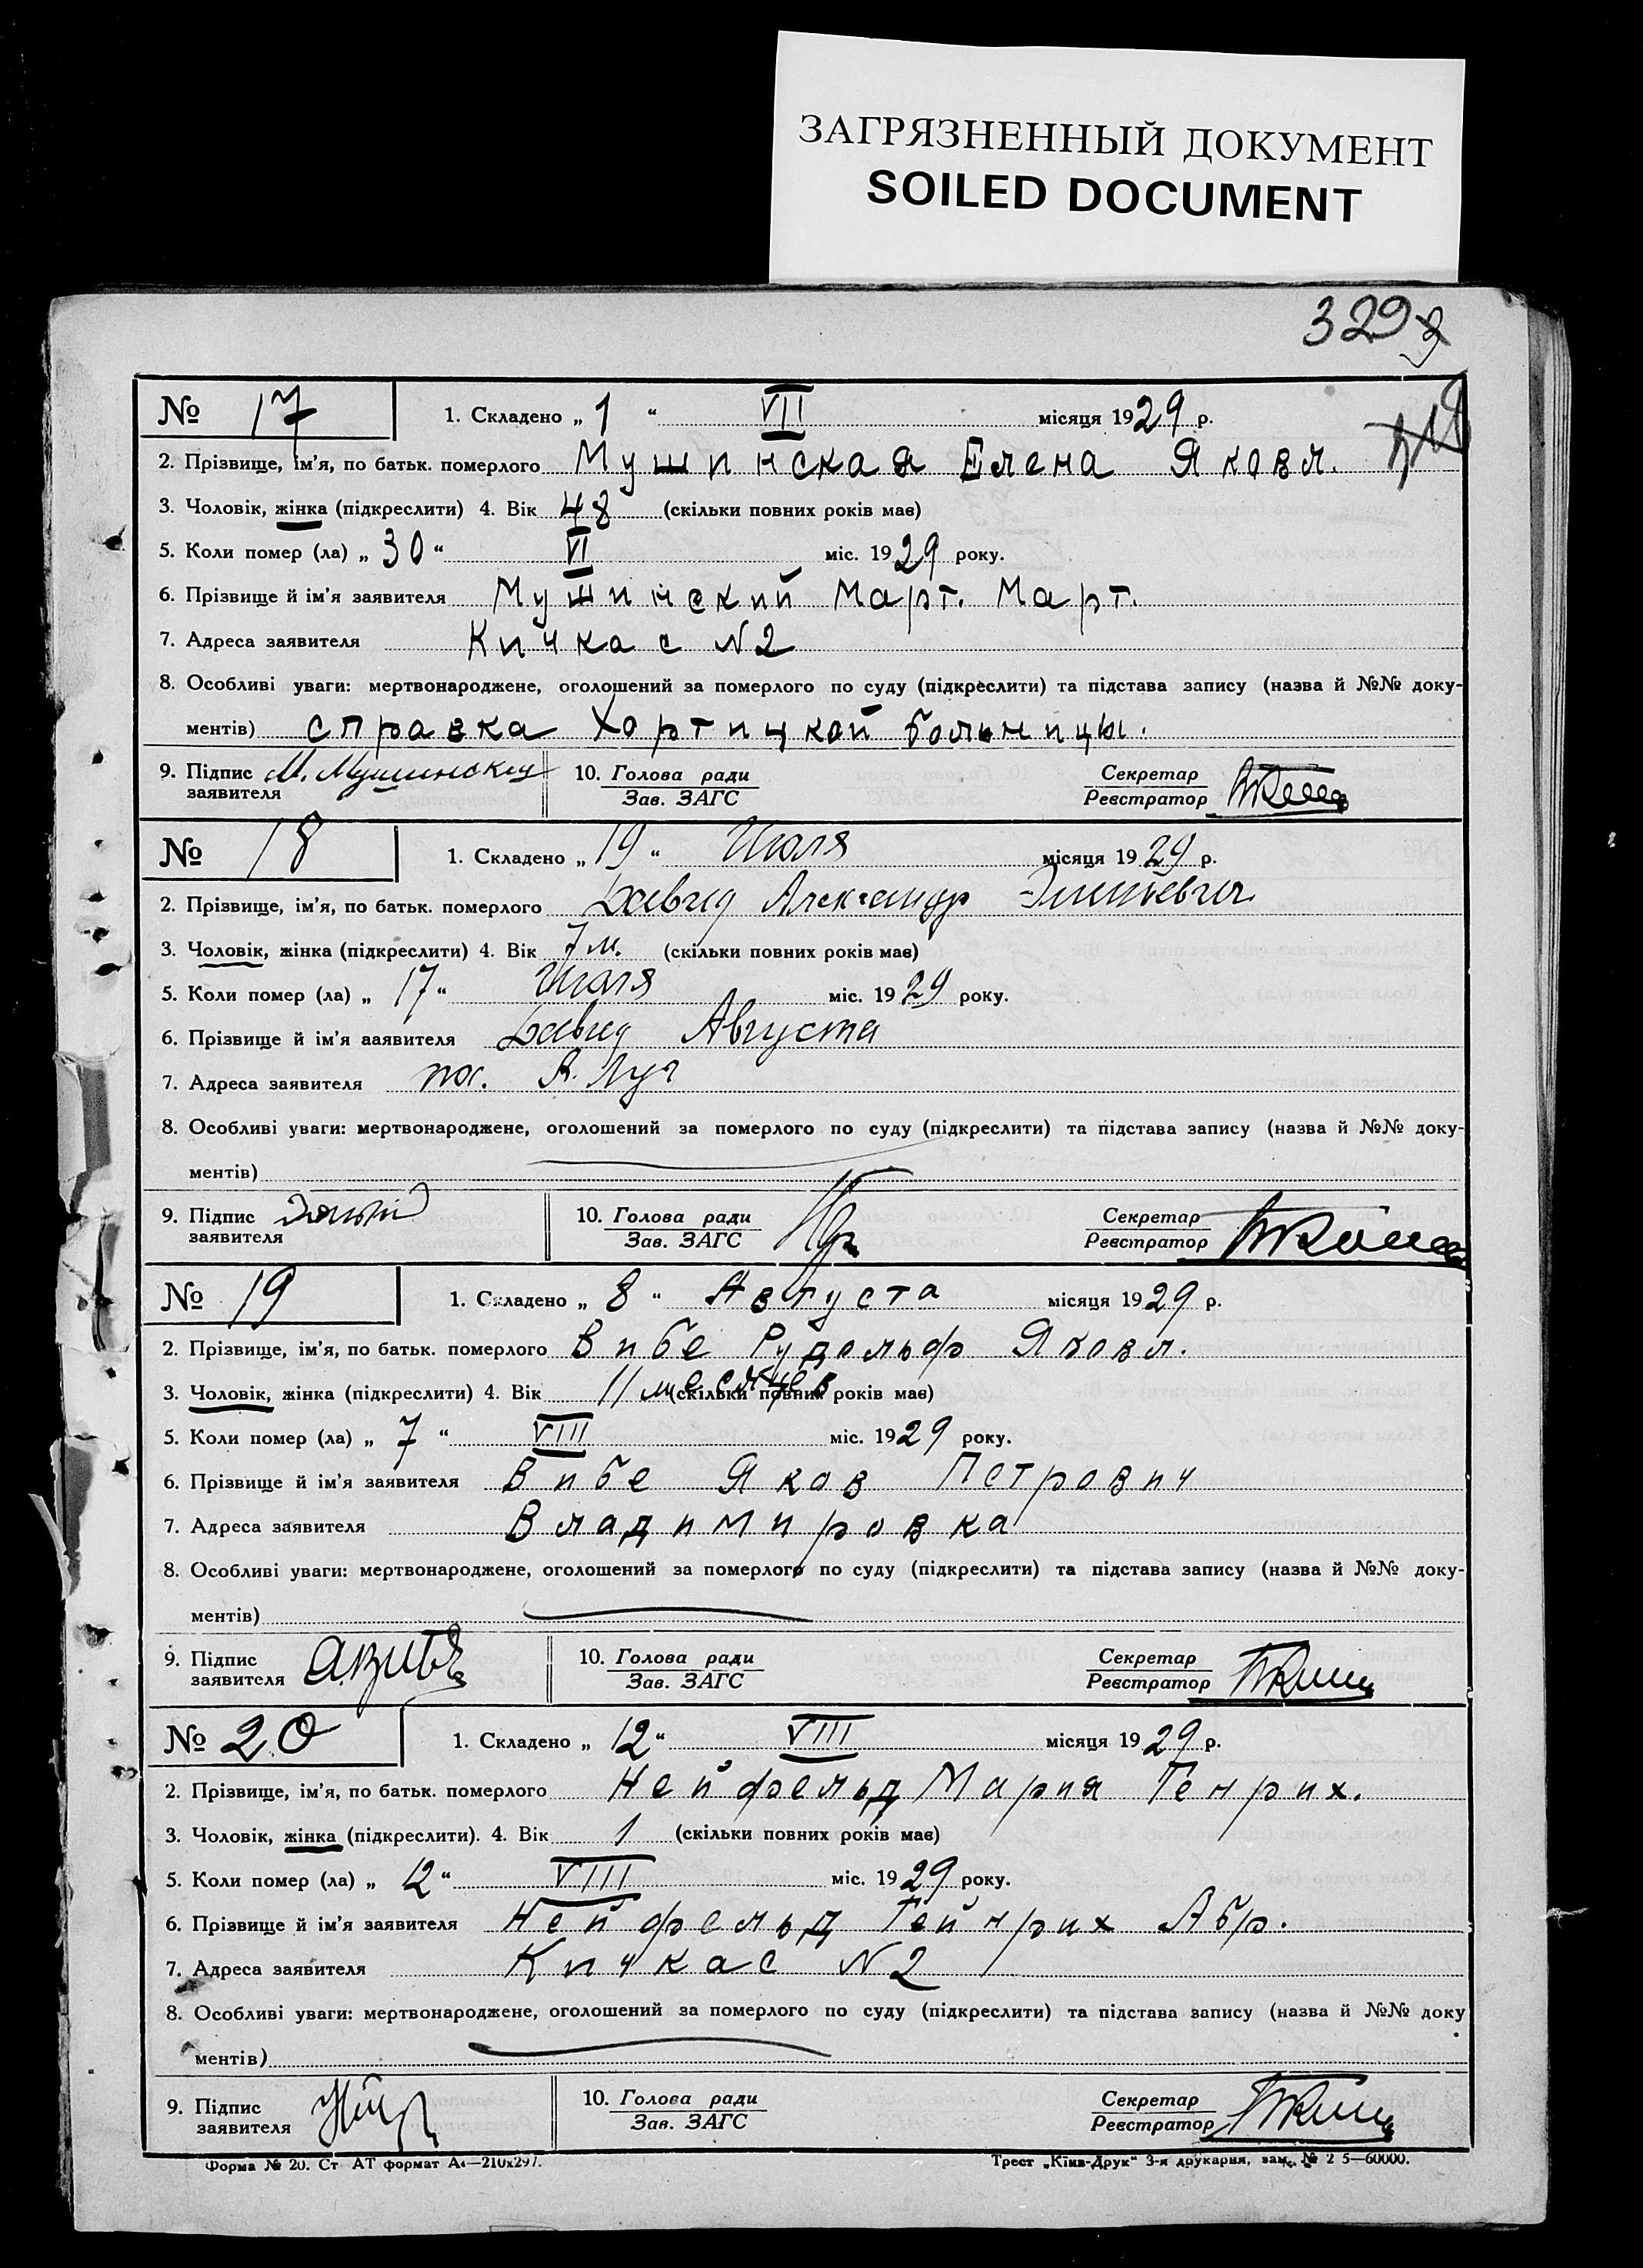 ЗАГРЯЗНЕННЫЙ ДОКУМЕНТ
SOILED DOCUMENT
329
№ 17 1. Складено „ 1 “ VII місяця 1929 р.
2. Прізвище, ім'я, по батьк. померлого Мушинская Елена Яковл.
3. Чоловік, жінка (підкреслити) 4. Вік 48 (скільки повних років має)
5. Коли помер (ла) „ 30 “ VI міс. 1929 року.
6. Прізвище й ім'я заявителя Мушинский Март. Март.
7. Адреса заявителя Кичкас N2
8. Особливі уваги: мертвонароджене, оголошений за померлого по суду (підкреслити) та підстава запису (назва й №№ доку-
ментів) справка Хортицкой больницы.
9. Підпис заявителя М. Мушинский 10. Голова ради Зав. ЗАГС Секретар Реєстратор
№ 18 1. Складено „ 19 “ Июля місяця 1929 р.
2. Прізвище, ім'я, по батьк. померлого Давид Александр
3. Чоловік, жінка (підкреслити) 4. Вік 7 м. (скільки повних років має)
5. Коли помер (ла) „ 17 “ Июля міс. 1929 року.
6. Прізвище й ім'я заявителя Давид Августа
7. Адреса заявителя пос. Я. Луг
8. Особливі уваги: мертвонароджене, оголошений за померлого по суду (підкреслити) та підстава запису (назва й №№ доку-
ментів)
9. Підпис заявителя 10. Голова ради Зав. ЗАГС Секретар Реєстратор
№ 19 1. Складено „ 8 “ Августа місяця 1929 р.
2. Прізвище, ім'я, по батьк. померлого Вибе Рудольф Яковл.
3. Чоловік, жінка (підкреслити) 4. Вік 11 месяцев (скільки повних років має)
5. Коли помер (ла) „ 7 “ VIII міс. 1929 року.
6. Прізвище й ім'я заявителя Вибе Яков Петрович
7. Адреса заявителя Владимировка
8. Особливі уваги: мертвонароджене, оголошений за померлого по суду (підкреслити) та підстава запису (назва й №№ доку-
ментів)
9. Підпис заявителя 10. Голова ради Зав. ЗАГС Секретар Реєстратор
№ 20 1. Складено „ 12 “ VIII місяця 1929 р.
2. Прізвище, ім'я, по батьк. померлого Нейфельд Мария Генрих.
3. Чоловік, жінка (підкреслити). 4. Вік 1 (скільки повних років має)
5. Коли помер (ла) „ 12 “ VIII міс. 1929 року.
6. Прізвище й ім'я заявителя Нейфельд Гейнрих Абр.
7. Адреса заявителя Кичкас N2
8. Особливі уваги: мертвонароджене, оголошений за померлого по суду (підкреслити) та підстава запису (назва й №№ доку
ментів)
9. Підпис заявителя 10. Голова ради Зав. ЗАГС Секретар Реєстратор
Форма № 20. Ст АТ формат А4—210x297. Трест „Київ-Друк“ 3-я друкарня, зам. № 2 5—60000.